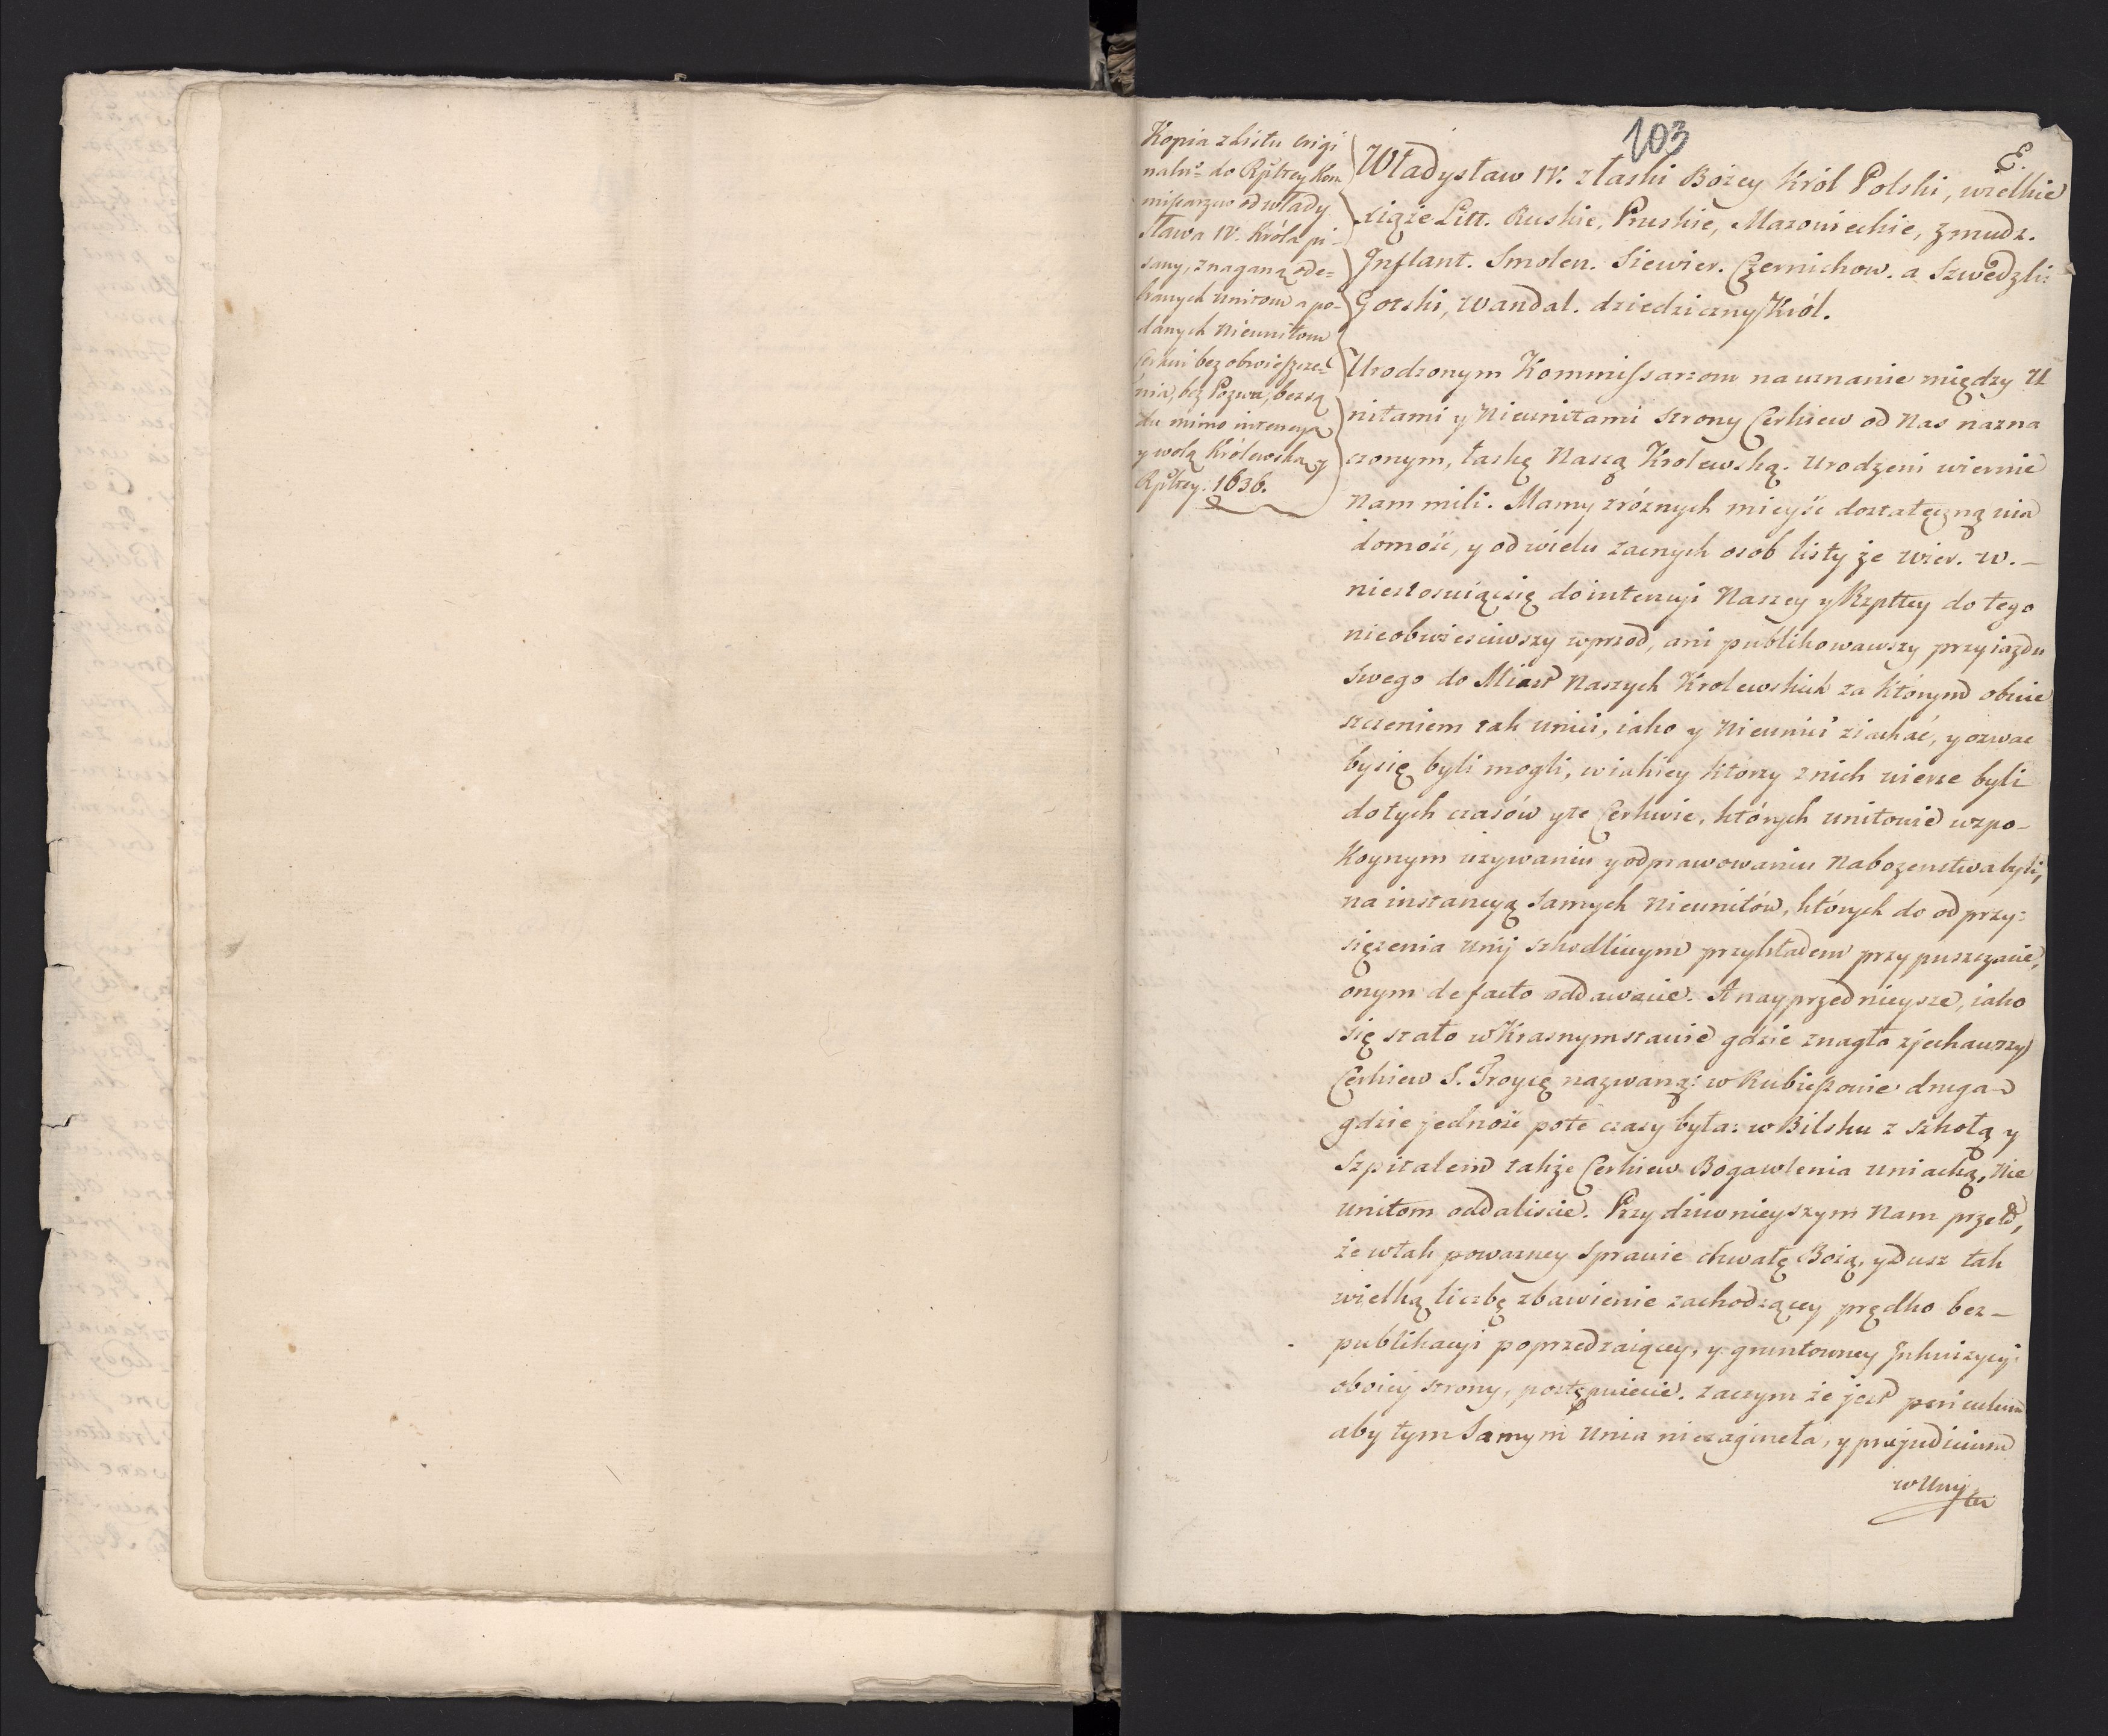 103
E.
Kopia z listu origi
naln: do Rpltey Kom
missarzow od włady
sława IV. Króla pi-
sany, z naganą ode=
branych unitom a po-
danych Nieunitom
Cerkwi bez obwieszcze=
nia, bez Pozwu, bez są
du mimo intencyą
y wolą Królewską y
Rpltey. 1636.
Władysław IV. z łaski Bożey Król Polski, wielkie
xiąże Litt. Ruskie, Pruskie, Mazowieckie, Zmudz.
Inflant. Smolen. Siewier. Czernichow. a Szwedzki:
Gotski, Wandal. dziedziczny Król.
Urodzonym Kommissarzom na uznanie między U
nitami y Nieunitami strony Cerkiew od Nas nazna
czonym, łaskę Naszą Krolewską. Urodzeni wiernie
Nam mili. Mamy z róznych mieysc dostateczną wia
domosc, y od wielu zacnych osob listy że wier. w. –
niestosuiącsię do intencyi Naszey y Rzpltey do tego
nieobwiesciwszy wprzod, ani publikowawszy przyiazdu
swego do Miast Naszych Krolewskich za którym obwie
szczeniem tak unici, iako y Nieunici ziachać, y ozwac
bysię byli mogli, w iakiey ktorzy z nich wierze byli
do tych czasów y te Cerkwie, których unitowie w spo-
Koynym uzywaniu y odprawowaniu Nabozenstwa byli,
na instancyą Samych Nieunitów, których do odprzy:
siężenia unij szkodliwym przykładem przypuszczacie,
onym de facto oddawacie. A nayprzednieysze, iako
się stało w Krasnymstawie gdzie znagła zjechawszy
Cerkiew S. Troycę nazwaną: w Rubieszowie druga
gdzie jednosc pote czasy była: w Bilsku z szkołą y
Szpitalem także Cerkiew Bogawlenia uniacką, Nie
unitom oddaliscie. Przy dziwnieyszym Nam przed,
że w tak powazney sprawie chwałę Bożą, y Dusz tak
wielką liczbę zbawienie zachodzącey prędko bez –
publikacyi poprzedzaiącey, y gruntowney Inkwizycyi
oboiey strony, postępuiecie. Zaczym że jest periculum
aby tym Samym Unia nie zagineła, y prejudicium
w Unij